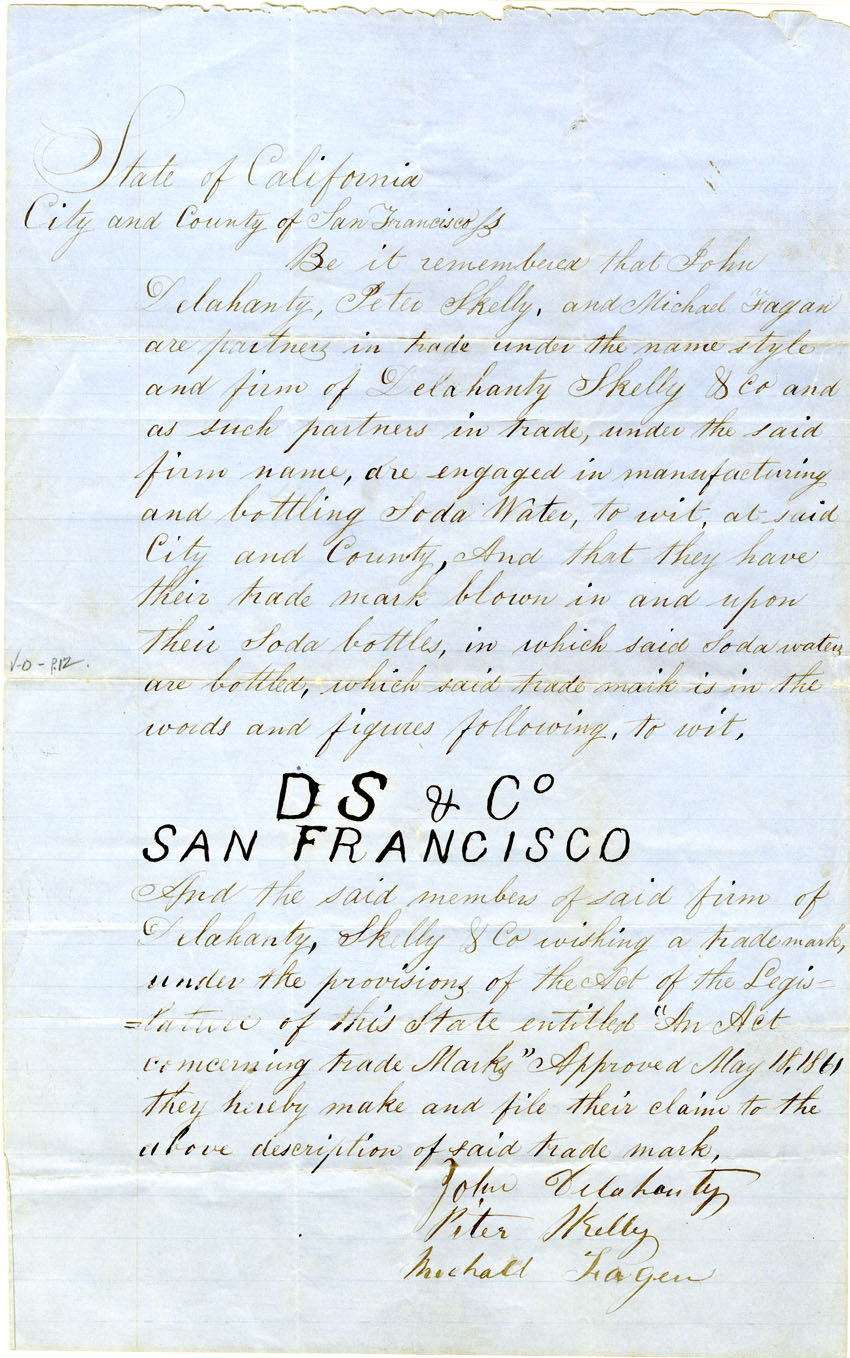 State of California
City and County of San Francisco ss
Be it remembered that John
Delahanty, Peter Skelly, and Michael Fagan
are partners in trade under the name style
and firm of Delahanty Skelly & Co and
as such partners in trade, under the said
firm name, are engaged in manufacturing
and bottling Soda Water, to wit, at said
City and County, And that they have
their trade mark blown in and upon
their Soda bottles, in which said Soda waters
V-O-P.12.
are bottled, which said trade mark is in the
words and figures following, to wit,
DS & Co
SAN FRANCISCO
And the said members of said firm of
Delahanty, Skelly & Co wishing a trade mark,
under the provisions of the Act of the Legis=
=lature of this State entitled "An Act
concerning trade Marks" Approved May 18, 1861
they hereby make and file their claim to the
above description of said trade mark,
John Delahanty
Peter Skelly
Michall Fagen